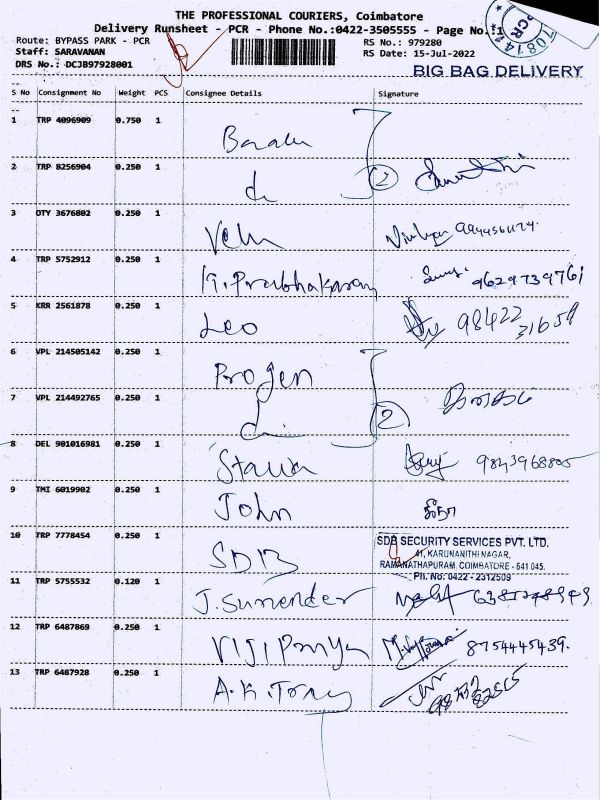 THE PROFESSIONAL COURIERS, Coimbatore
Delivery Runsheet - PCR - Phone No.:0422-3505555 - Page No.:1
Route: BYPASS PARK - PCR
RS No.: 979280
Staff: SARAVANAN
RS Date: 15-Jul-2022
DRS No.: DCJB97928001
BIG BAG DELIVERY
S No Consignment No Weight PCS Consignee Details Signature
1 TRP 4096909 0.750 1
2 TRP 8256904 0.250 1 2
3 OTY 3676802 0.250 1 Velu
4 TRP 5752912 0.250 1 K. Prabhakaran 9629739761
5 KRR 2561878 0.250 1 Leo 98422 31659
6 VPL 214505142 0.250 1 Progen
7 VPL 214492765 0.250 1 2
8 DEL 901016981 0.250 1 9843968805
9 TMI 6019902 0.250 1 John
10 TRP 7778454 0.250 1 SDB
SDB SECURITY SERVICES PVT. LTD.
41, KARUNANITHI NAGAR,
RAMANATHAPURAM, COIMBATORE - 641 045.
Ph. No: 0422 - 2312509
11 TRP 5755532 0.120 1 J. Surrender
12 TRP 6487869 0.250 1 Viji Priya 8754445439.
13 TRP 6487928 0.250 1 A.K. Tony